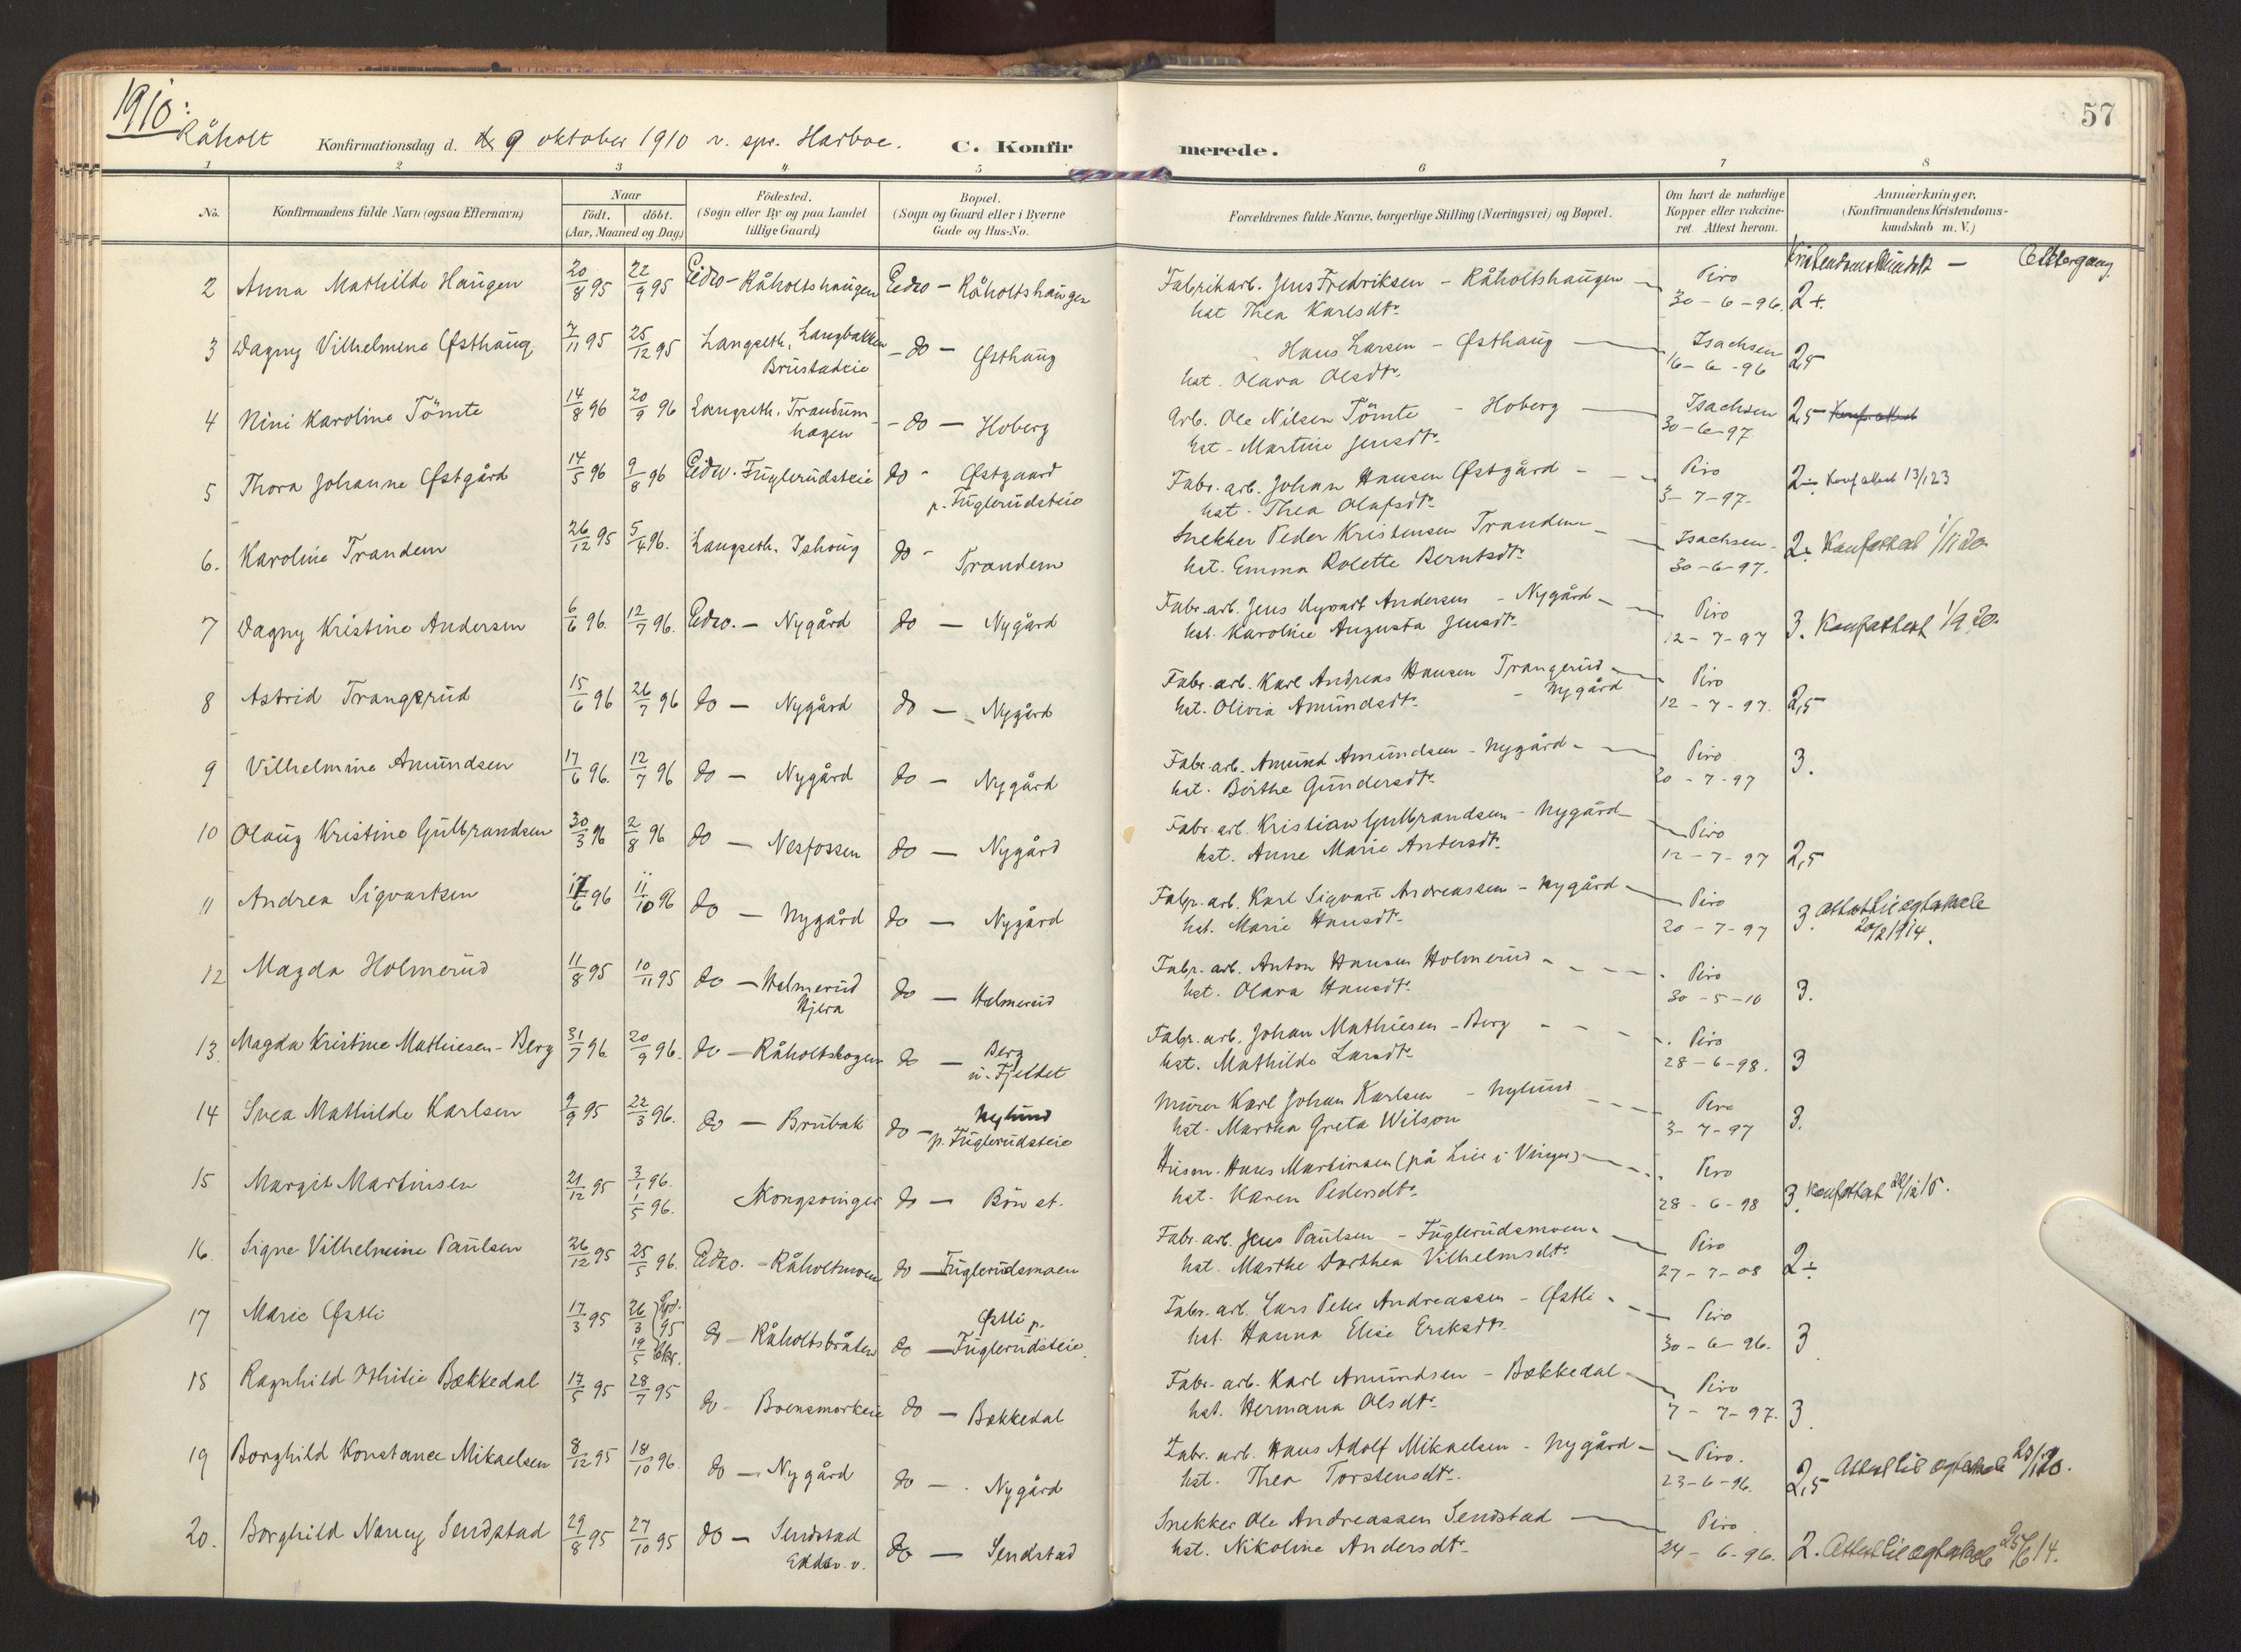 1910:
Råholt
Konfirmationsdag d. 9 oktober 1910 v. spr. Harboe.
C. Konfirmerede.
57
1 2 3 4 5 6 7 8
No.
Konfirmandens fulde Navn (ogsaa Efternavn)
Naar
födt. döbt.
(Aar, Maaned og Dag)
Födested.
(Sogn eller By og paa Landet
tillige Gaard)
Bopæl.
(Sogn og Gaard eller i Byerne
Gade og Hus-No.
Forældrenes fulde Navne, borgerlige Stilling (Næringsvei) og Bopæl.
Om havt de naturlige
Kopper eller vakcine-
ret Attest herom.
Anmærkninger.
(Konfirmandens Kristendoms-
kundskab m. V.)
2 Anna Mathilde Haugen 20/8 95 22/9 95 Eidsv - Råholtshaugen Eidsv - Råholtshaugen Fabrikarb. Jens Fredriksen - Råholtshaugen Piro
hst Thea Karlsdtr. 30-6-96. 2+
3 Dagny Vilhelmine Østhaug 7/11 95 25/12 95 Langseth, Langbakken - do - Østhaug Hans Larsen - Østhaug Isachsen
Brustadeie hst. Olava Olsdtr. 16-6-96 2,5
4 Nini Karoline Tömte 14/8 96 20/9 96 Langseth. Trandum- - do - Hoberg Arb. Ole Nilsen Tömte - Hoberg Isachsen 2,5
hagen hst - Martine Jensdtr. 30-6-97
5 Thora Johanne Østgård 14/5 96 9/8 96 Eidsv. Fuglerudsteie do - Østgaard Fabr. arb. Johan Hansen Østgård - Piro 2÷ Konfattest 13/1 23
p. Fuglerudsteie hst. Thea Olafsdtr. 3-7-97.
6. Karoline Trandem 26/12 95 5/4 96. Langseth. Ishoug do - Trandem Snekker Peder Kristensen Trandem Isachsen 2. Konfattest 1/11 20
hst. Emma Rolette Berntsdtr. 30-6-97.
7 Dagny Kristine Andersen 6/6 96 12/7 96. Eidsv. - Nygård do - Nygård Fabr. arb. Jens Andersen - Nygård Piro
hst. Karoline Augusta Jensdtr. 12-7-97 3. Konfattest 1/9 20
8 Astrid Trangerud 15/6 96 26/7 96 do - Nygård do - Nygård Fabr. arb. Karl Andreas Hansen Trangerud Piro
hst. Olivia Amundsdtr. - Nygård 12-7-97. 2,5
9 Vilhelmine Amundsen 17/6 96. 12/7 96 do - Nygård do - Nygård Fabr. arb. Amund Amundsen - Nygård - Piro 3.
hst. Birthe Gundersdtr. 20-7-97
10 Olaug Kristine Gulbrandsen 30/3 96 2/8 96 do - Nesfossen do - Nygård Fabr. arb. Kristian Gulbrandsen - Nygård Piro
hst. Anne Marie Andersdtr. 12-7-97 2,5
11 Andrea Sigvartsen 17/6 96 11/10 96 do - Nygård do - Nygård Fabr. arb. Karl Sigvart Andreassen - Nygård Piro
hst. Marie Hansdtr. 20-7-97 3. Attest til ægteskab
20/2 1914.
12 Magda Holmerud 11/8 95 10/11 95 do - Holmerud do - Holmerud Fabr. arb. Anton Hansen Holmerud Piro
hst. Olava Hansdtr. 30-5-10 3.
13. Magda Kristine Mathiesen - Berg 31/7 96 20/9 96. do - Råholtskogen do - Berg Fabr. arb. Johan Mathiesen - Berg Piro
u. Fjeldet hst. Mathilde Larsdtr. 28-6-98. 3
14 Svea Mathilde Karlsen 9/9 95 22/3 96. do - Brubak do - Nylund Murer Karl Johan Karlsen - Nylund Piro
p. Fuglerudsteie hst. Martha Greta Wilson 3-7-97 3.
15 Margit Martinsen 21/12 95 3/1 96. Kongsvinger do - Bön st. Hans Martinsen (på Lie i Vinger) Piro
1/5 96. hst. Karen Pedersdtr. 28-6-98 3. Konfattest
16. Signe Vilhelmine Paulsen 26/12 95 25/5 96. Eidsv. - Råholtmoen do - Fuglerudsmoen Fabr. arb. Jens Paulsen - Fuglerudsmoen Piro
hst. Marthe Dorthea Vilhelmsdtr. 27-7-08 2÷
17 Marie Østli 17/3 95 26/3 95 do - Råholtsbråten do - Østli p. Fabr. arb. Lars Peter Andreassen - Østli Piro
19/5 Fuglerudsteie. hst. Hanna Elise Eriksdtr. 30-6-96. 3
18 Ragnhild Othilie Bækkedal 17/5 95 28/7 95 do - Boensmorkeie do - Bækkedal Fabr. arb. Karl Amundsen - Bækkedal Piro
hst. Hermana Olsdtr. 7-7-97. 3
19 Borghild Konstance Mikaelsen 8/12 95 18/10 96. do - Nygård do - Nygård Fabr. arb. Hans Adolf Mikaelsen - Nygård Piro.
hst. Thea Torstensdtr. 23-6-96. 2,5 Attest til ægteskab
20. Borghild Nancy Sendstad 29/8 95 27/10 95 do - Sendstad do - Sendstad Snekker Ole Andreassen Sendstad Piro
hst. Nikoline Andersdtr. 24-6-96. 2. Attest til ægteskab 25/6 14.